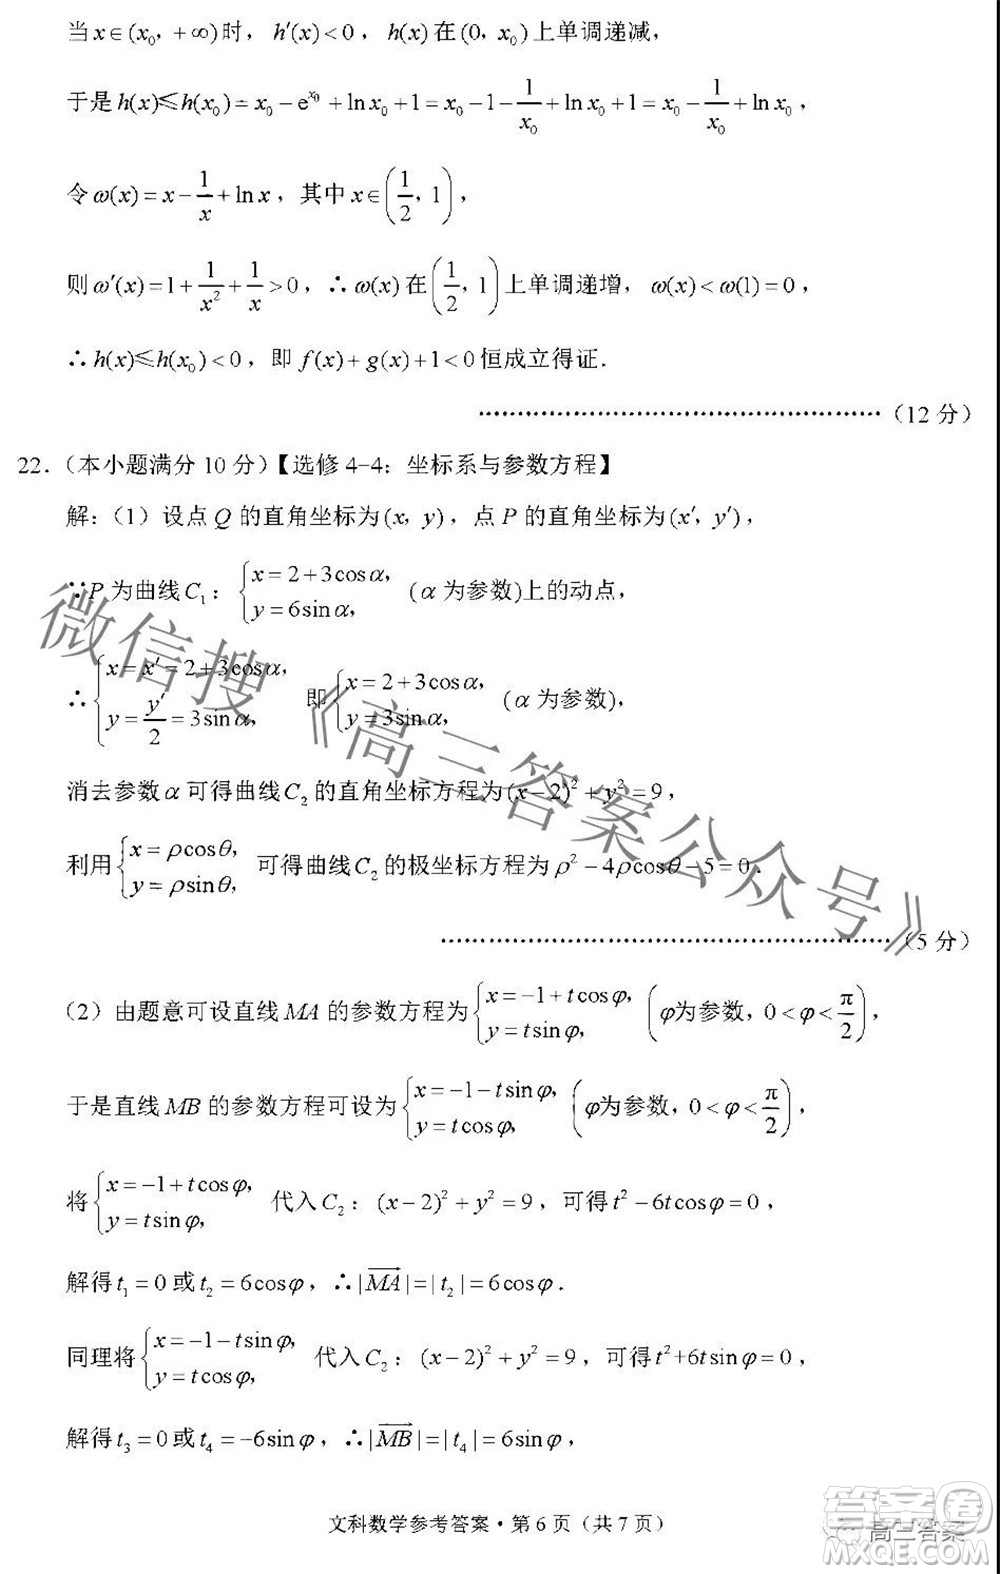 当 x∈(x₀, +∞)时, h′(x)<0, h(x)在(0, x₀)上单调递减,
于是 h(x)≤h(x₀)=x₀−e^{x₀}+ln x₀+1=x₀−1−1/x₀+ln x₀+1=x₀−1/x₀+ln x₀,
令ω(x)=x−1/x+ln x, 其中 x∈(1/2, 1),
则ω′(x)=1+1/x²+1/x>0, ∴ω(x)在(1/2, 1)上单调递增, ω(x)<ω(1)=0,
∴h(x)≤h(x₀)<0, 即 f(x)+g(x)+1<0 恒成立得证.
……………………………………………(12 分)
22.(本小题满分 10 分)【选修 4-4: 坐标系与参数方程】
解:(1) 设点 Q 的直角坐标为(x, y), 点 P 的直角坐标为(x′, y′),
∵P 为曲线 C₁: {x=2+3cosα, y=6sinα, (α 为参数)上的动点,
∴{x=x′=2+3cosα, y=y′/2=3sinα, 即{x=2+3cosα, y=3sinα, (α 为参数),
消去参数α可得曲线C₂的直角坐标方程为(x−2)²+y²=9,
利用{x=ρcosθ, y=ρsinθ, 可得曲线C₂的极坐标方程为ρ²−4ρcosθ−5=0.
……………………………………………(5 分)
(2) 由题意可设直线MA的参数方程为{x=−1+tcosφ, y=tsinφ, (φ为参数, 0<φ<π/2),
于是直线MB的参数方程可设为{x=−1−tsinφ, y=tcosφ, (φ为参数, 0<φ<π/2),
将{x=−1+tcosφ, y=tsinφ, 代入C₂: (x−2)²+y²=9, 可得t²−6tcosφ=0,
解得t₁=0 或t₂=6cosφ, ∴|MA|=|t₂|=6cosφ.
同理将{x=−1−tsinφ, y=tcosφ, 代入C₂: (x−2)²+y²=9, 可得t²+6tsinφ=0,
解得t₃=0 或t₄=−6sinφ, ∴|MB|=|t₄|=6sinφ,
文科数学参考答案·第 6 页(共 7 页)
微信搜《高三答案公众号》
高三答案
答案圈
MXQE.COM